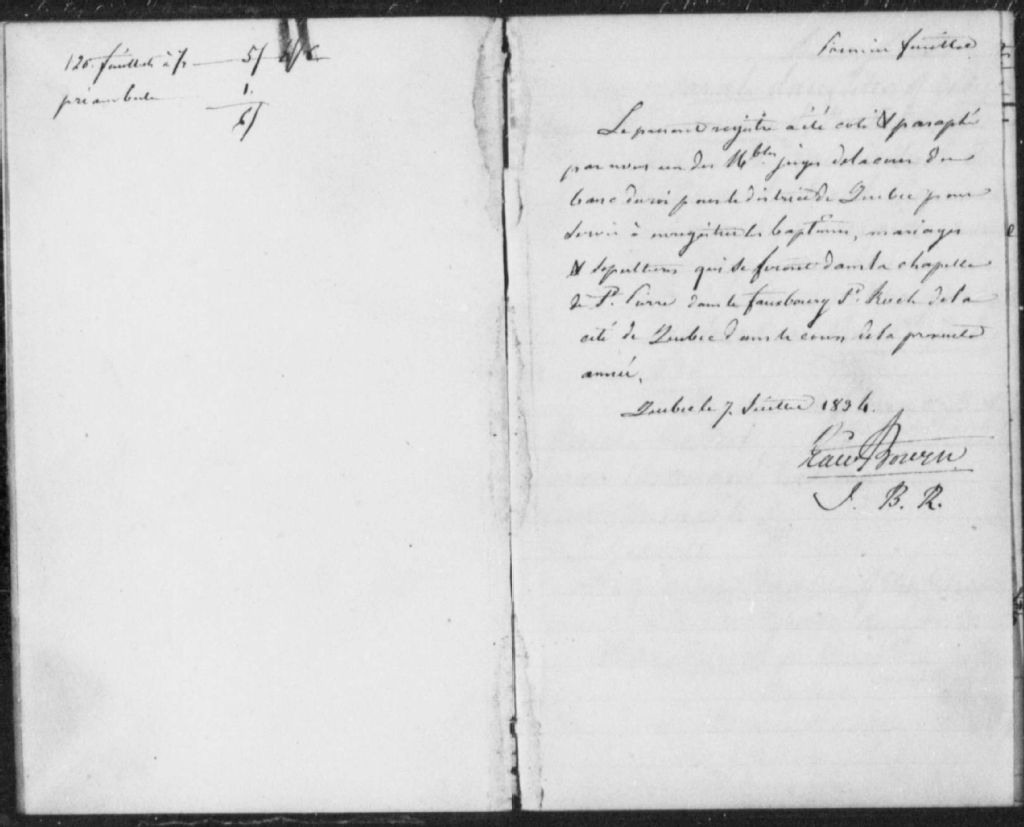 120 feuillets à /. 5/
préambule 1.
6/
Premier feuillet
Le present registre a été coté & paraphé
par nous un des Hbles juges de la cour du
banc du roi pour le district de Quebec pour
servir à enregistrer les baptêmes, mariages
& sepultures qui se feront dans la chapelle
de St. Pierre dans le fauxbourg St. Roch de la
cité de Quebec dans le cours de la presente
année.
Quebec le 7. Juillet 1834.
Edwd Bowen
J. B. R.